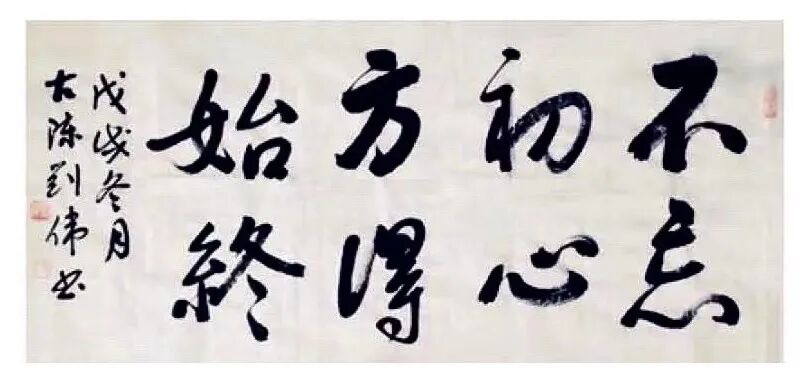 不忘
初心
方得
始終
戊戌冬月
古陈劉伟书